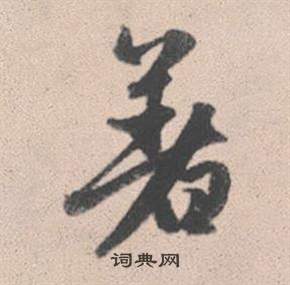 著
词典网